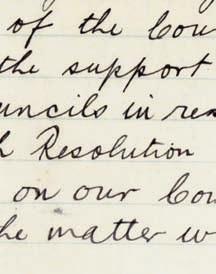 of the Cou
the support
uncils in res
h Resolution
on our Cou
he matter w